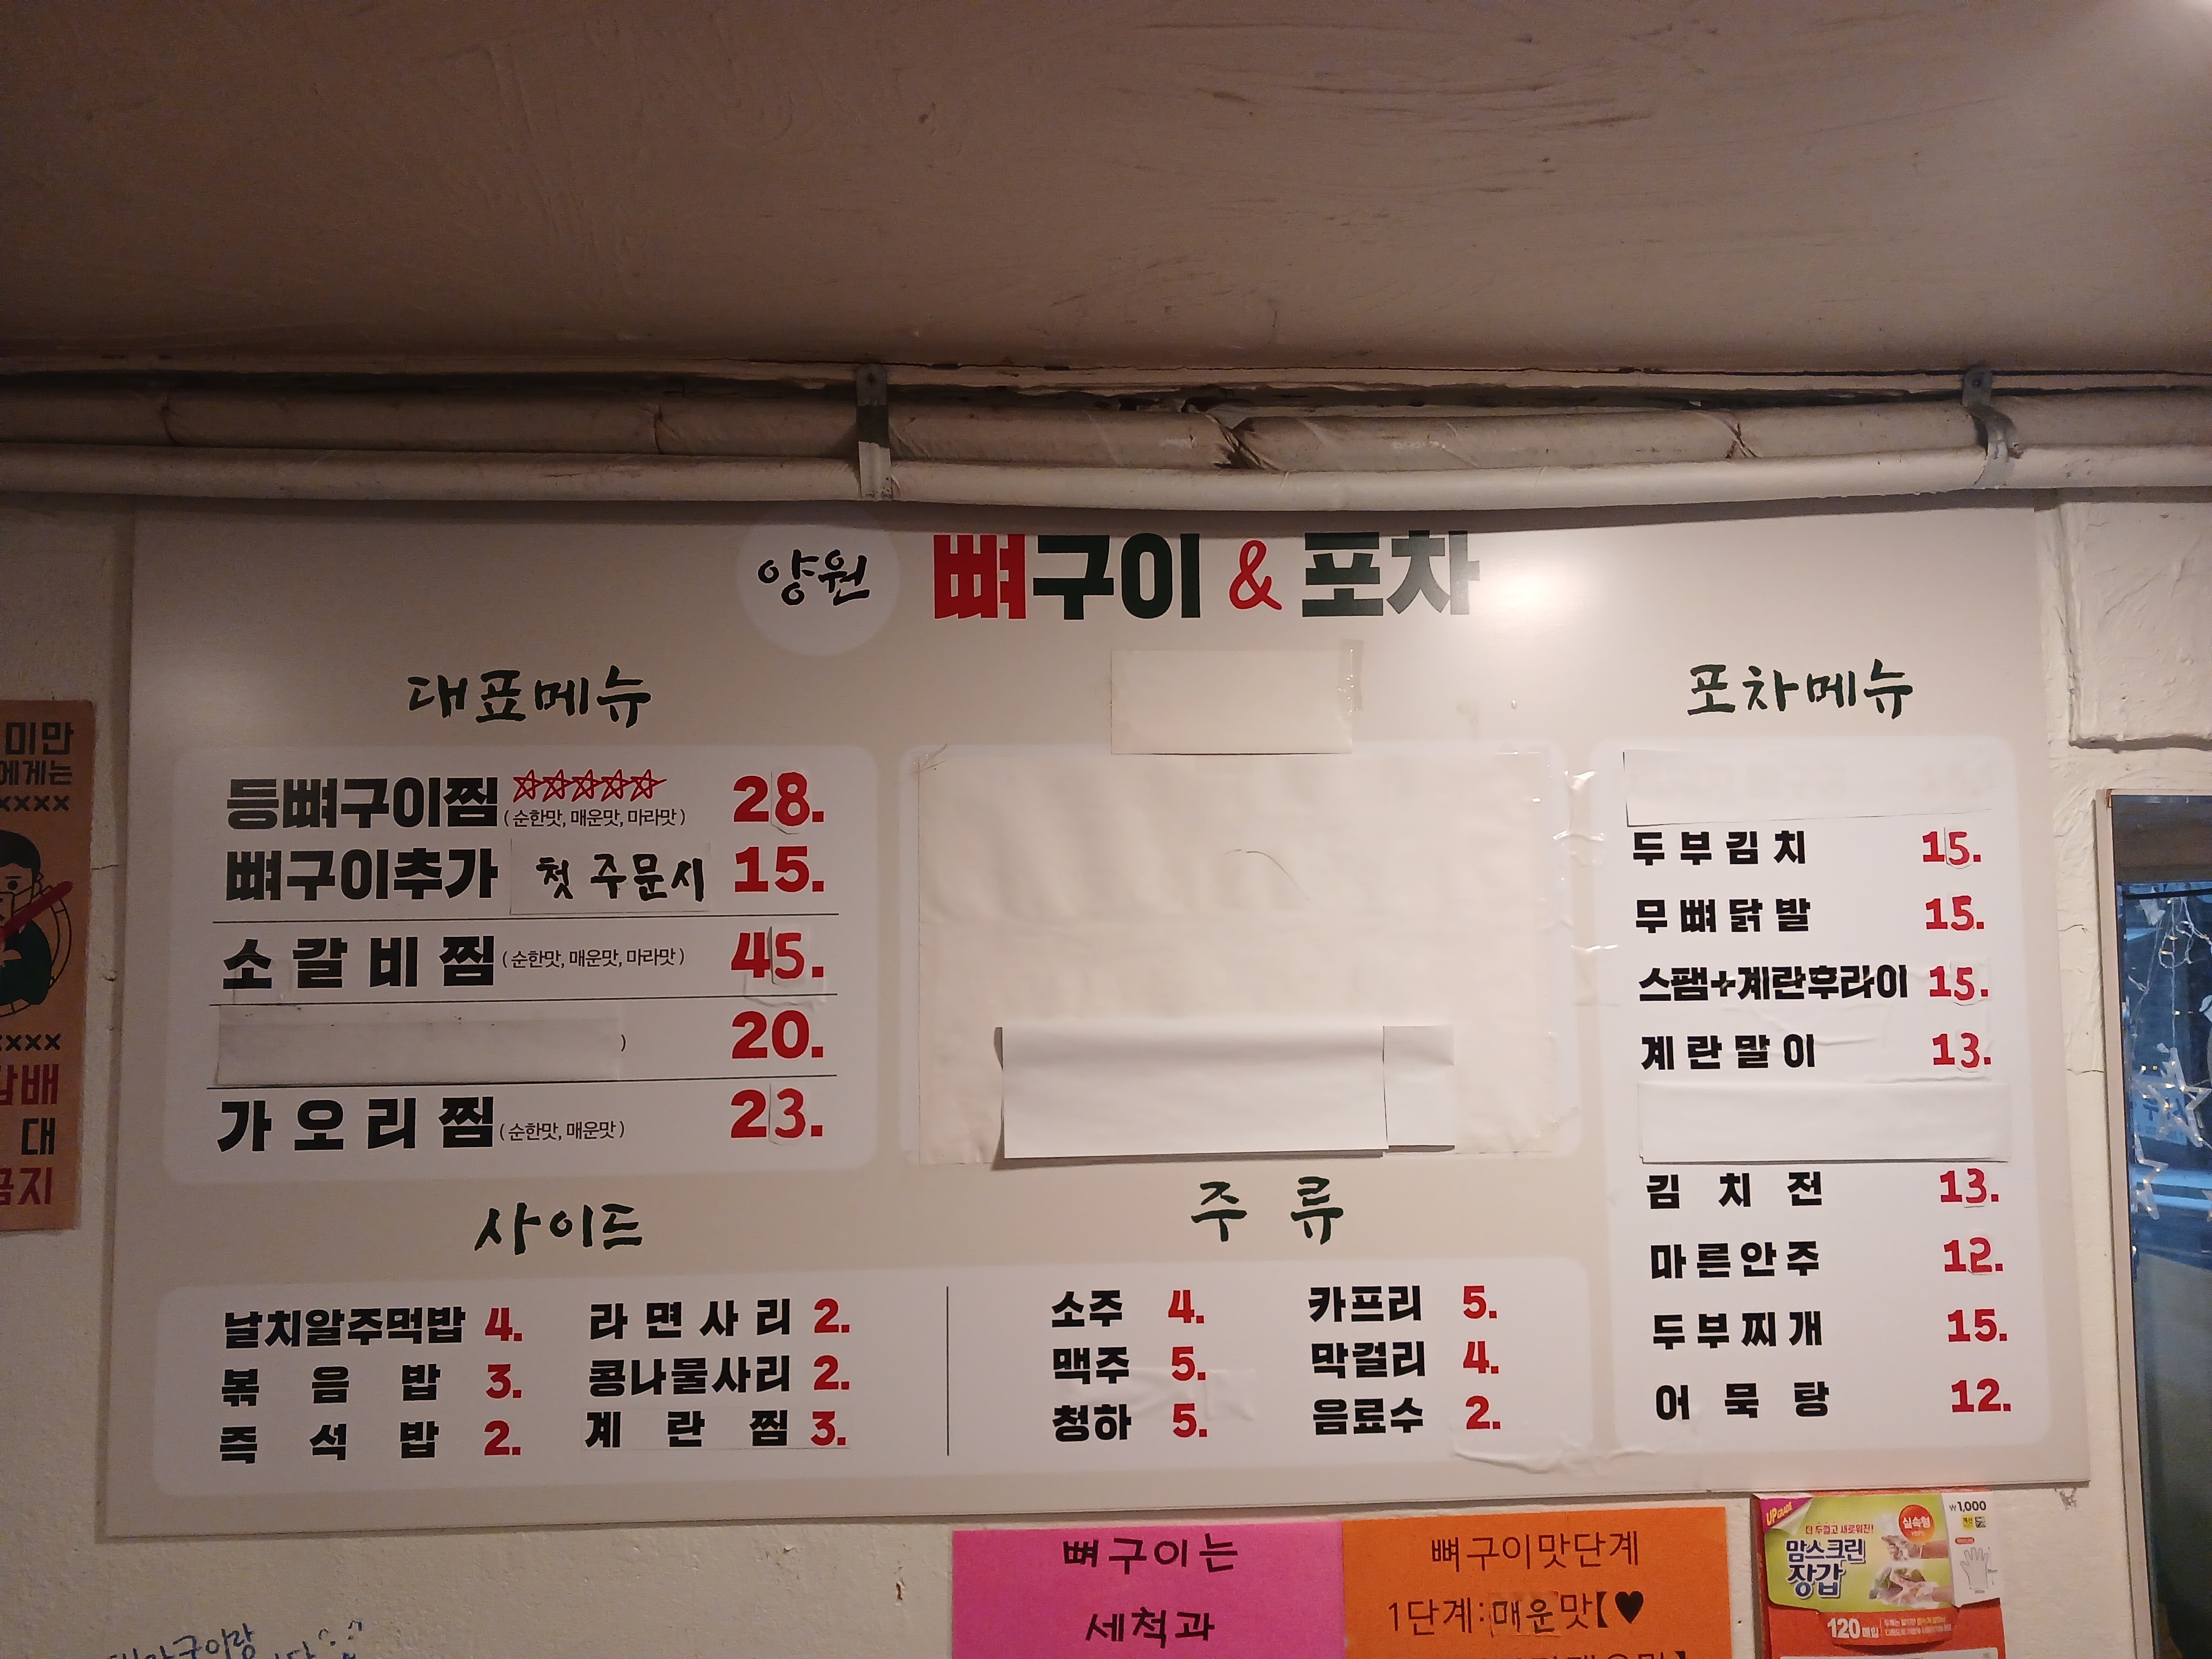 양원 뼈구이 & 포차
대표메뉴
등뼈구이찜 ☆☆☆☆☆ (순한맛, 매운맛, 마라맛) 28.
뼈구이추가 첫 주문시 15.
소갈비찜 (순한맛, 매운맛, 마라맛) 45.
) 20.
가오리찜 (순한맛, 매운맛) 23.
사이드
날치알주먹밥 4.
볶음밥 3.
즉석밥 2.
라면사리 2.
콩나물사리 2.
계란찜 3.
주류
소주 4.
맥주 5.
청하 5.
카프리 5.
막걸리 4.
음료수 2.
포차메뉴
두부김치 15.
무뼈닭발 15.
스팸+계란후라이 15.
계란말이 13.
김치전 13.
마른안주 12.
두부찌개 15.
어묵탕 12.
미만
에게는
xxxx
xxxx
담배
대
금지
뼈구이는
세척과
뼈구이맛단계
1단계:매운맛【♥
UP GRADE
₩1,000
더 두껍고 새로워진!
실속형
맘스크린
장갑
120매입